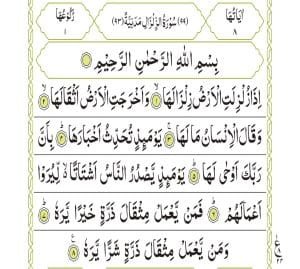 اٰيَاتُهَا ٨ (٩٩) سُوْرَةُ الزِّلْزَالِ مَدَنِيَّةٌ (٩٣) رُكُوْعُهَا ١
بِسْمِ اللّٰهِ الرَّحْمٰنِ الرَّحِيْمِ
اِذَا زُلْزِلَتِ الْاَرْضُ زِلْزَالَهَا ۙ‏﴿۱﴾ وَاَخْرَجَتِ الْاَرْضُ اَثْقَالَهَا ۙ‏﴿۲﴾
وَقَالَ الْاِنْسَانُ مَا لَهَا ۚ‏﴿۳﴾ يَوْمَئِذٍ تُحَدِّثُ اَخْبَارَهَا ۙ‏﴿۴﴾ بِاَنَّ
رَبَّكَ اَوْحٰى لَهَا ؕ‏﴿۵﴾ يَوْمَئِذٍ يَّصْدُرُ النَّاسُ اَشْتَاتًا ۙ لِّيُرَوْا
اَعْمَالَهُمْ ؕ‏﴿۶﴾ فَمَنْ يَّعْمَلْ مِثْقَالَ ذَرَّةٍ خَيْرًا يَّرَهٗ ؕ‏﴿۷﴾
وَمَنْ يَّعْمَلْ مِثْقَالَ ذَرَّةٍ شَرًّا يَّرَهٗ ‏﴿۸﴾